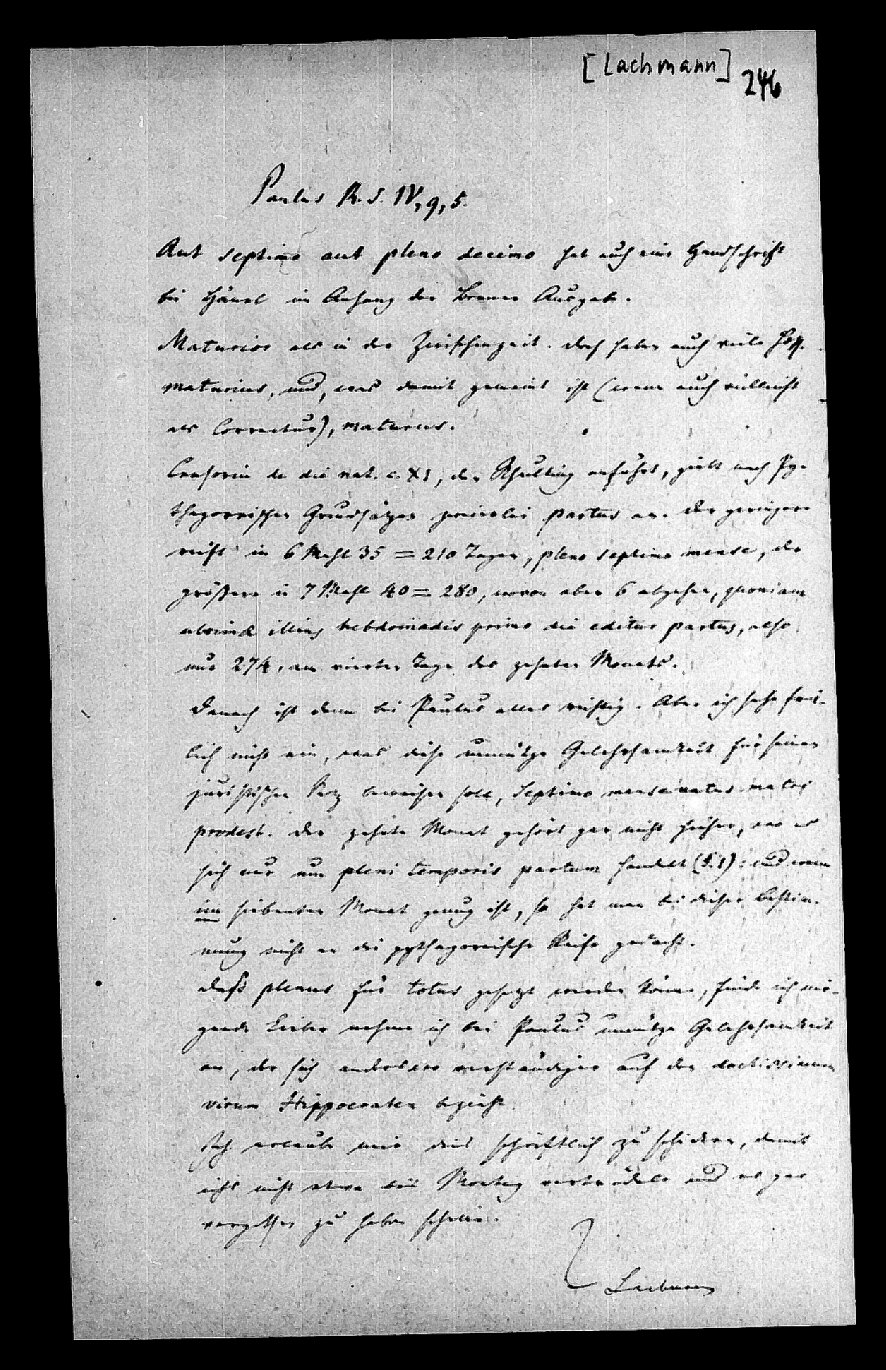 [Lachmann]
246
Paulus R. S. IV, 9, 5.
Aut septimo aut pleno decimo hat auch eine Handschrift
bei Hänel im Anhang der Bonner Ausgabe.
Maturior als in der Zwischenzeit. doch haben auch viele Hss.
maturius, und, was damit gemeint ist (wenn auch vielleicht
als Correctur), maturus.
Censorin de die nat. c. XI, den Schulting anführt, giebt nach Py-
thagoreischen Grundsätzen zweierlei partus an. der geringere
reift in 6 Mahl 35 = 210 Tagen, pleno septimo mense, der
größere in 7 Mahl 40 = 280, wovon aber 6 abgehen, quoniam
ultimae illius hebdomadis primo die editur partus, also
nur 274, am vierten Tage des zehnten Monats.
Danach ist denn bei Paulus alles richtig. Aber ich sehe frei-
lich nicht ein, was diese unnütze Gelehrsamkeit für seinen
juristischen Satz beweisen soll, Septimo mense natus matri
prodest. der zehnte Monat gehört gar nicht hieher, wo es
sich nur um pleni temporis partum handelt (§. 1): und wenn
im siebenten Monat genug ist, so hat man bei dieser Bestim-
mung nicht an die pythagoreische Reife gedacht.
daß plenus für totus gesetzt werden könne, finde ich nir-
gends. Lieber nehme ich bei Paulus unnütze Gelehrsamkeit
an, der sich anderswo verständiger auf den doctissimum
virum Hippocraten bezieht.
Ich erlaube mir dies schriftlich zu schicken, damit
ichs nicht etwa bis Montag vertrödele und es gar
vergessen zu haben scheine.
Lachmann